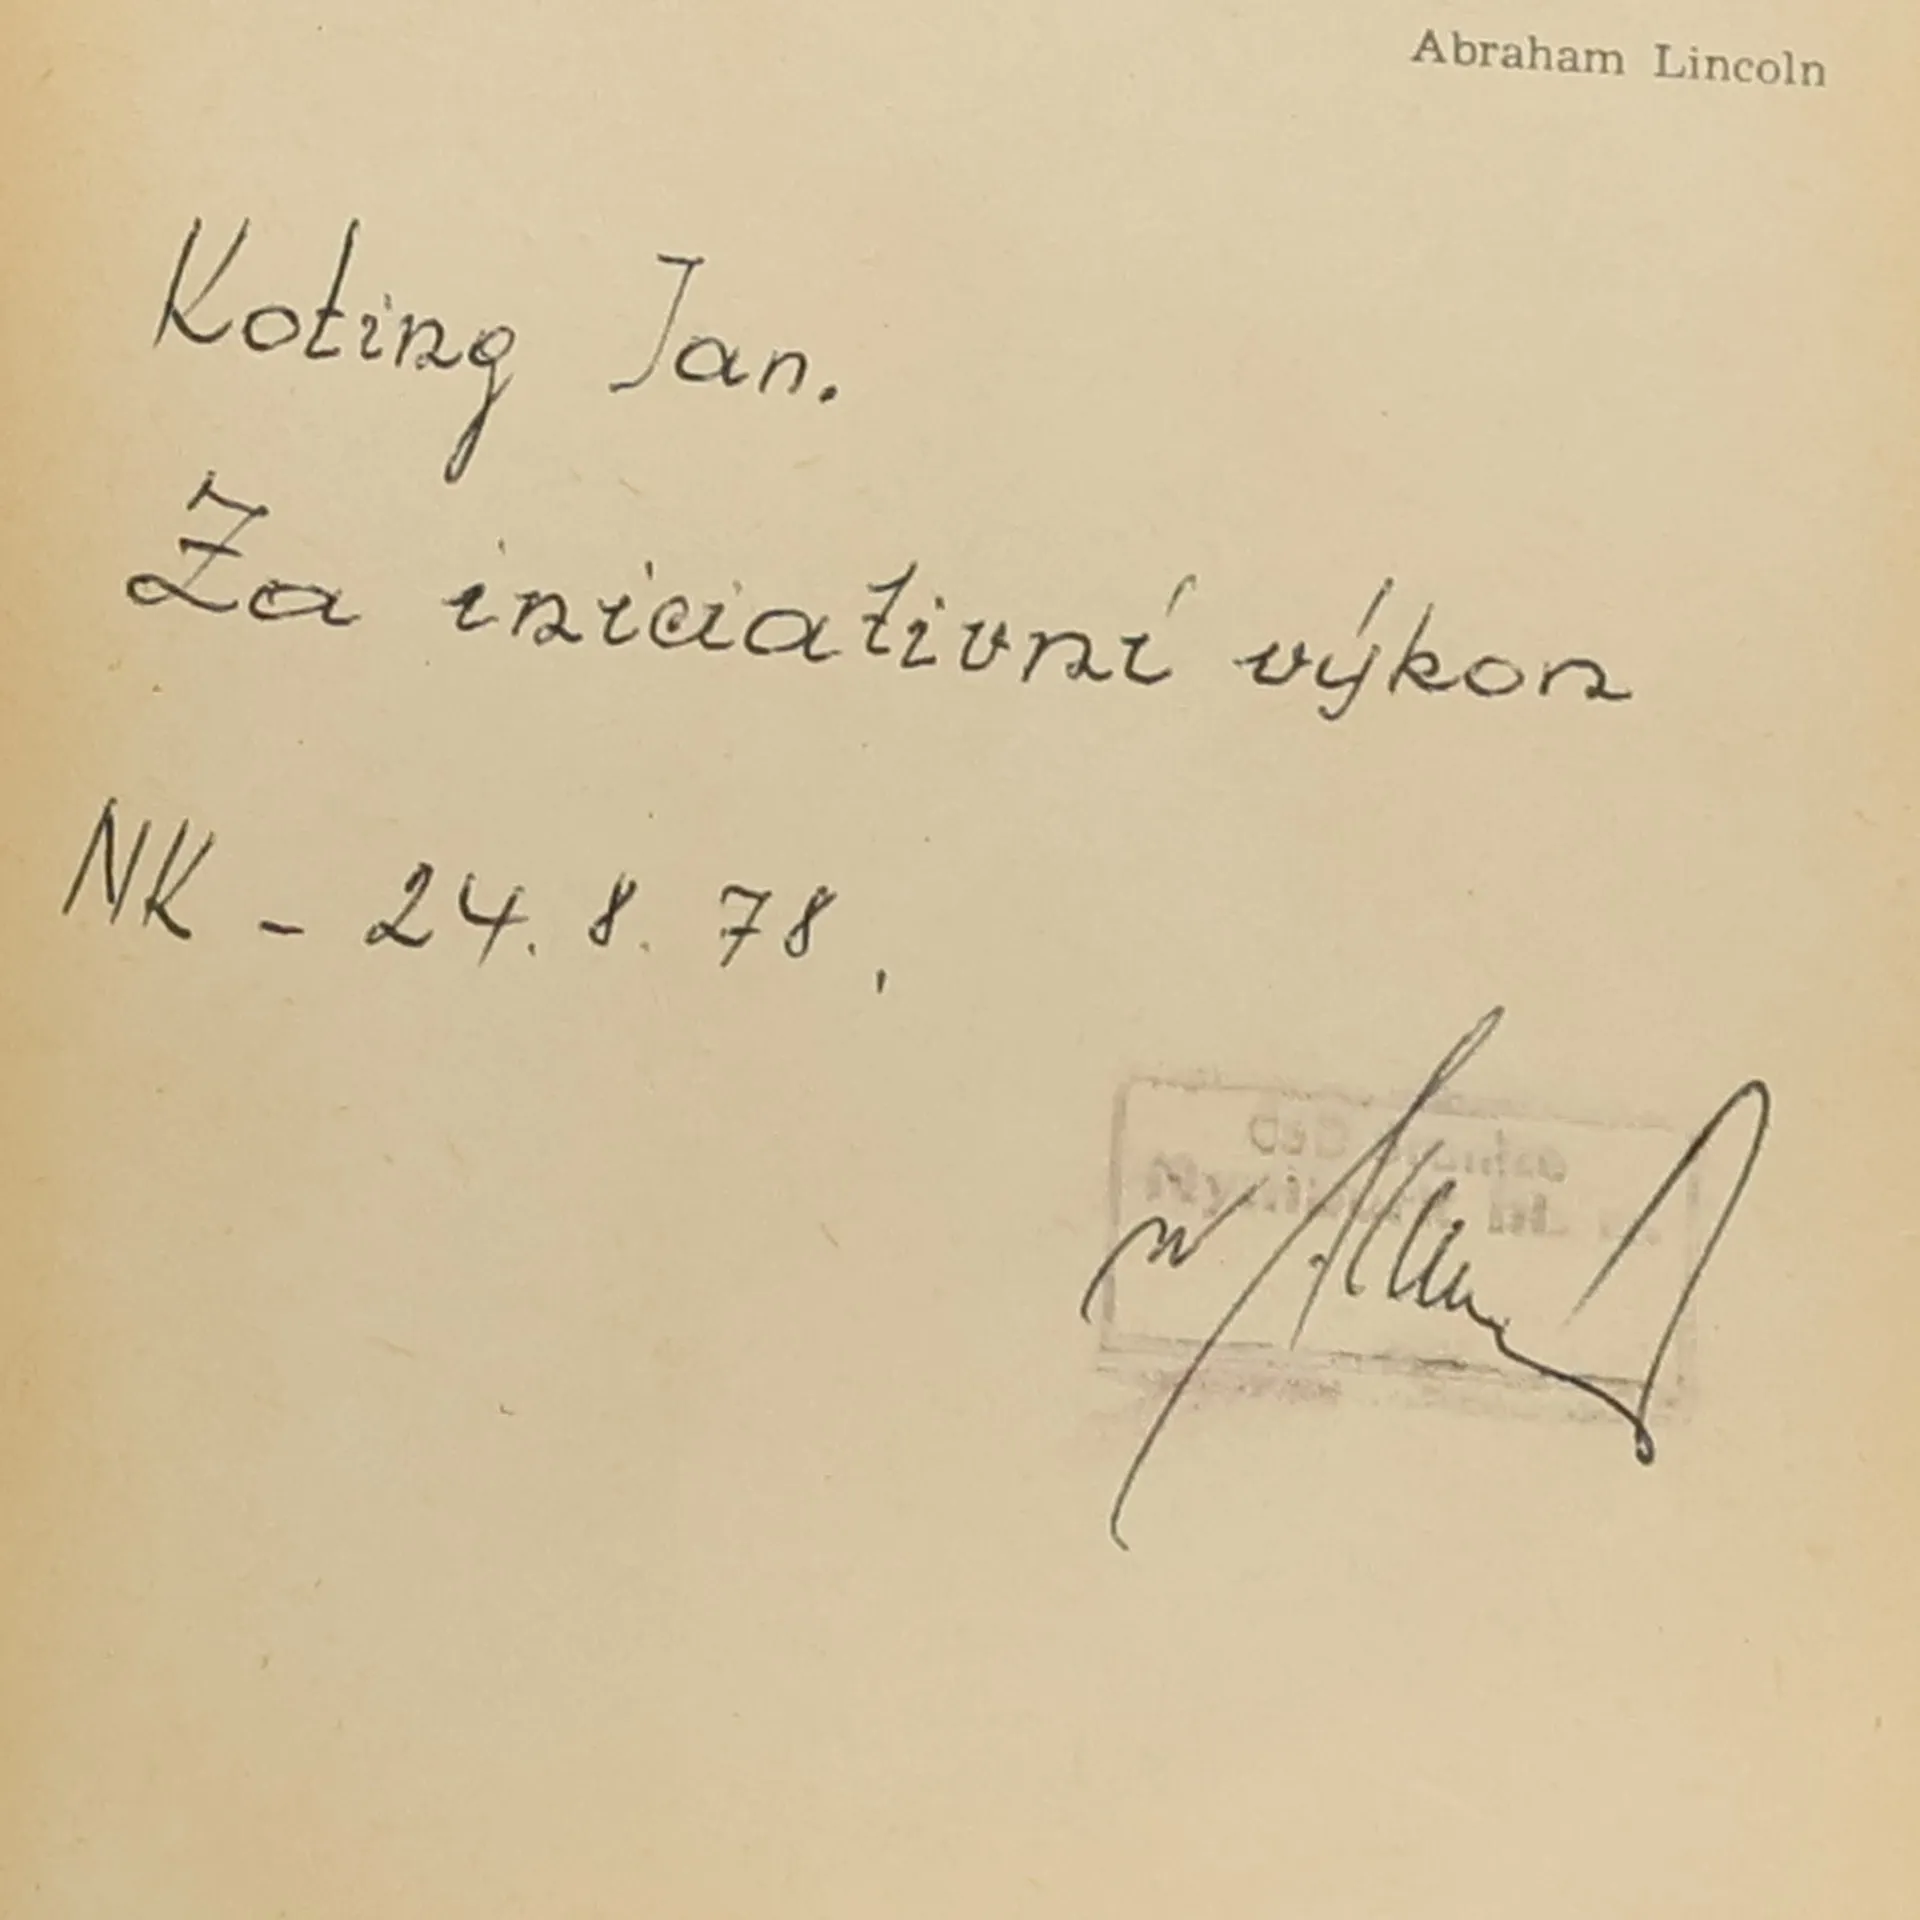 Abraham Lincoln
Koting Jan.
Za iniciativní výkon
NK - 24. 8. 78.